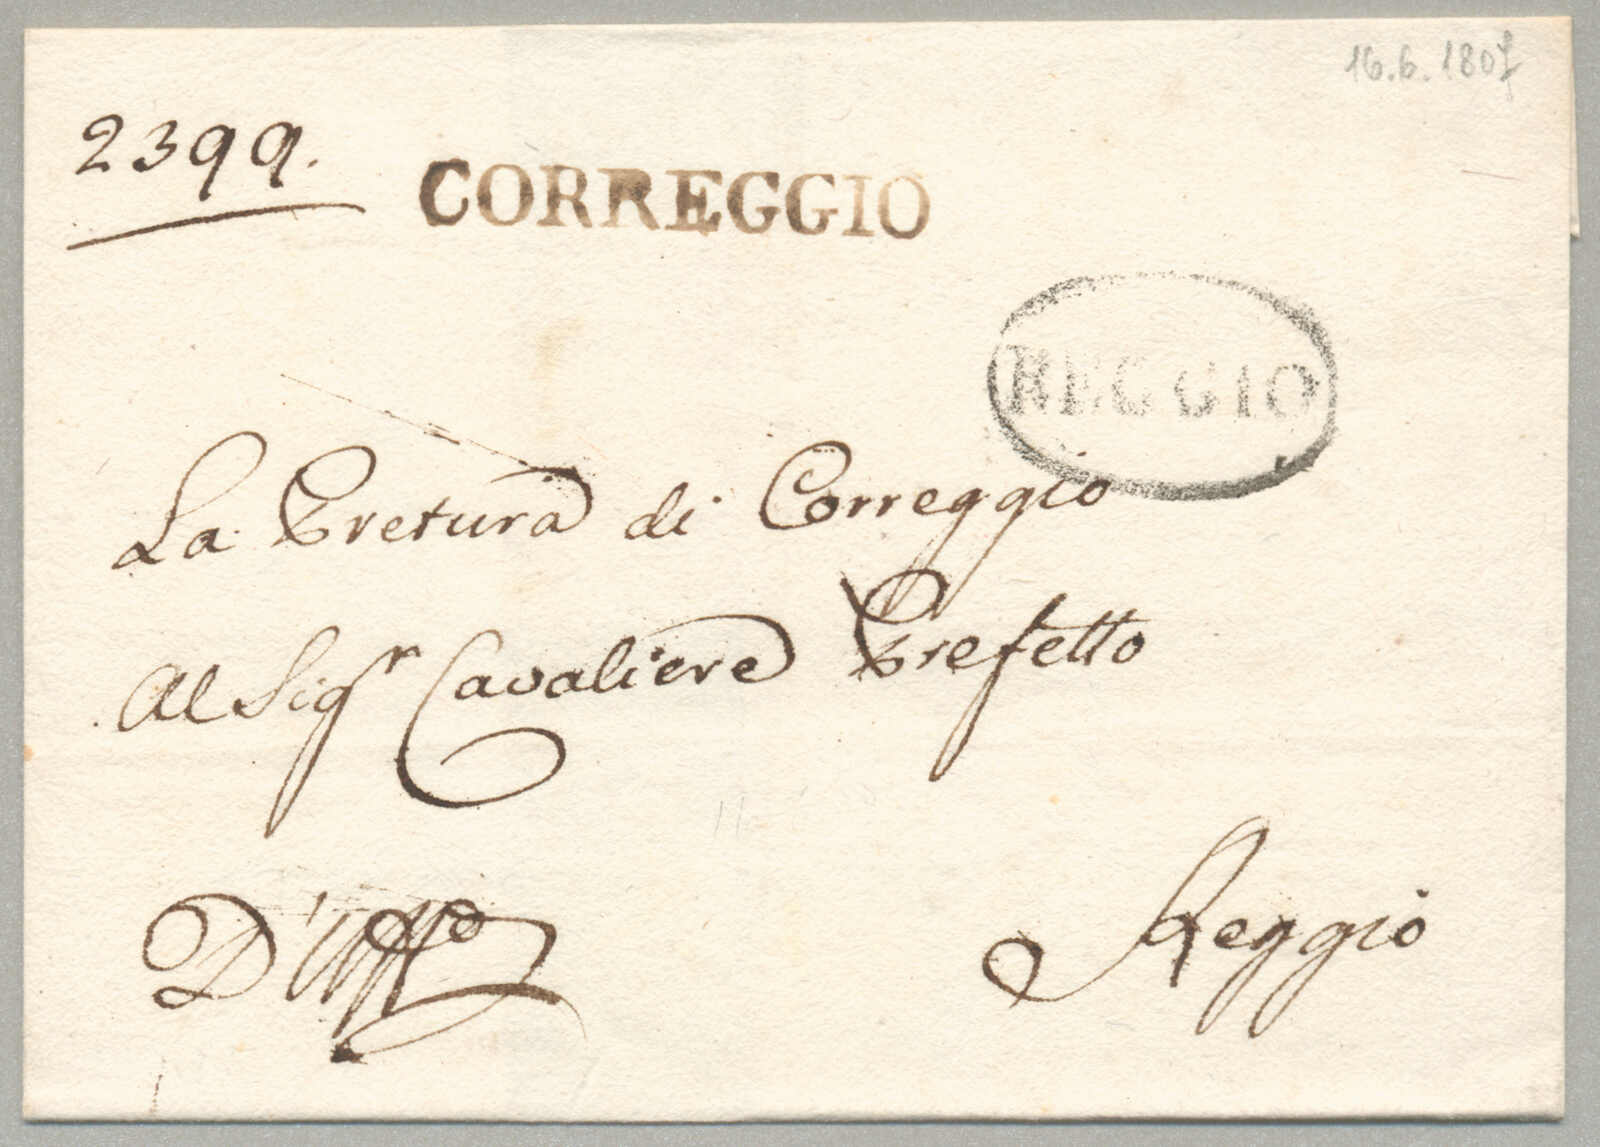 16.6.1807
2399.
CORREGGIO
REGGIO
La Pretura di Correggio
Al Sigr Cavaliere Prefetto
D'Uffo
Reggio